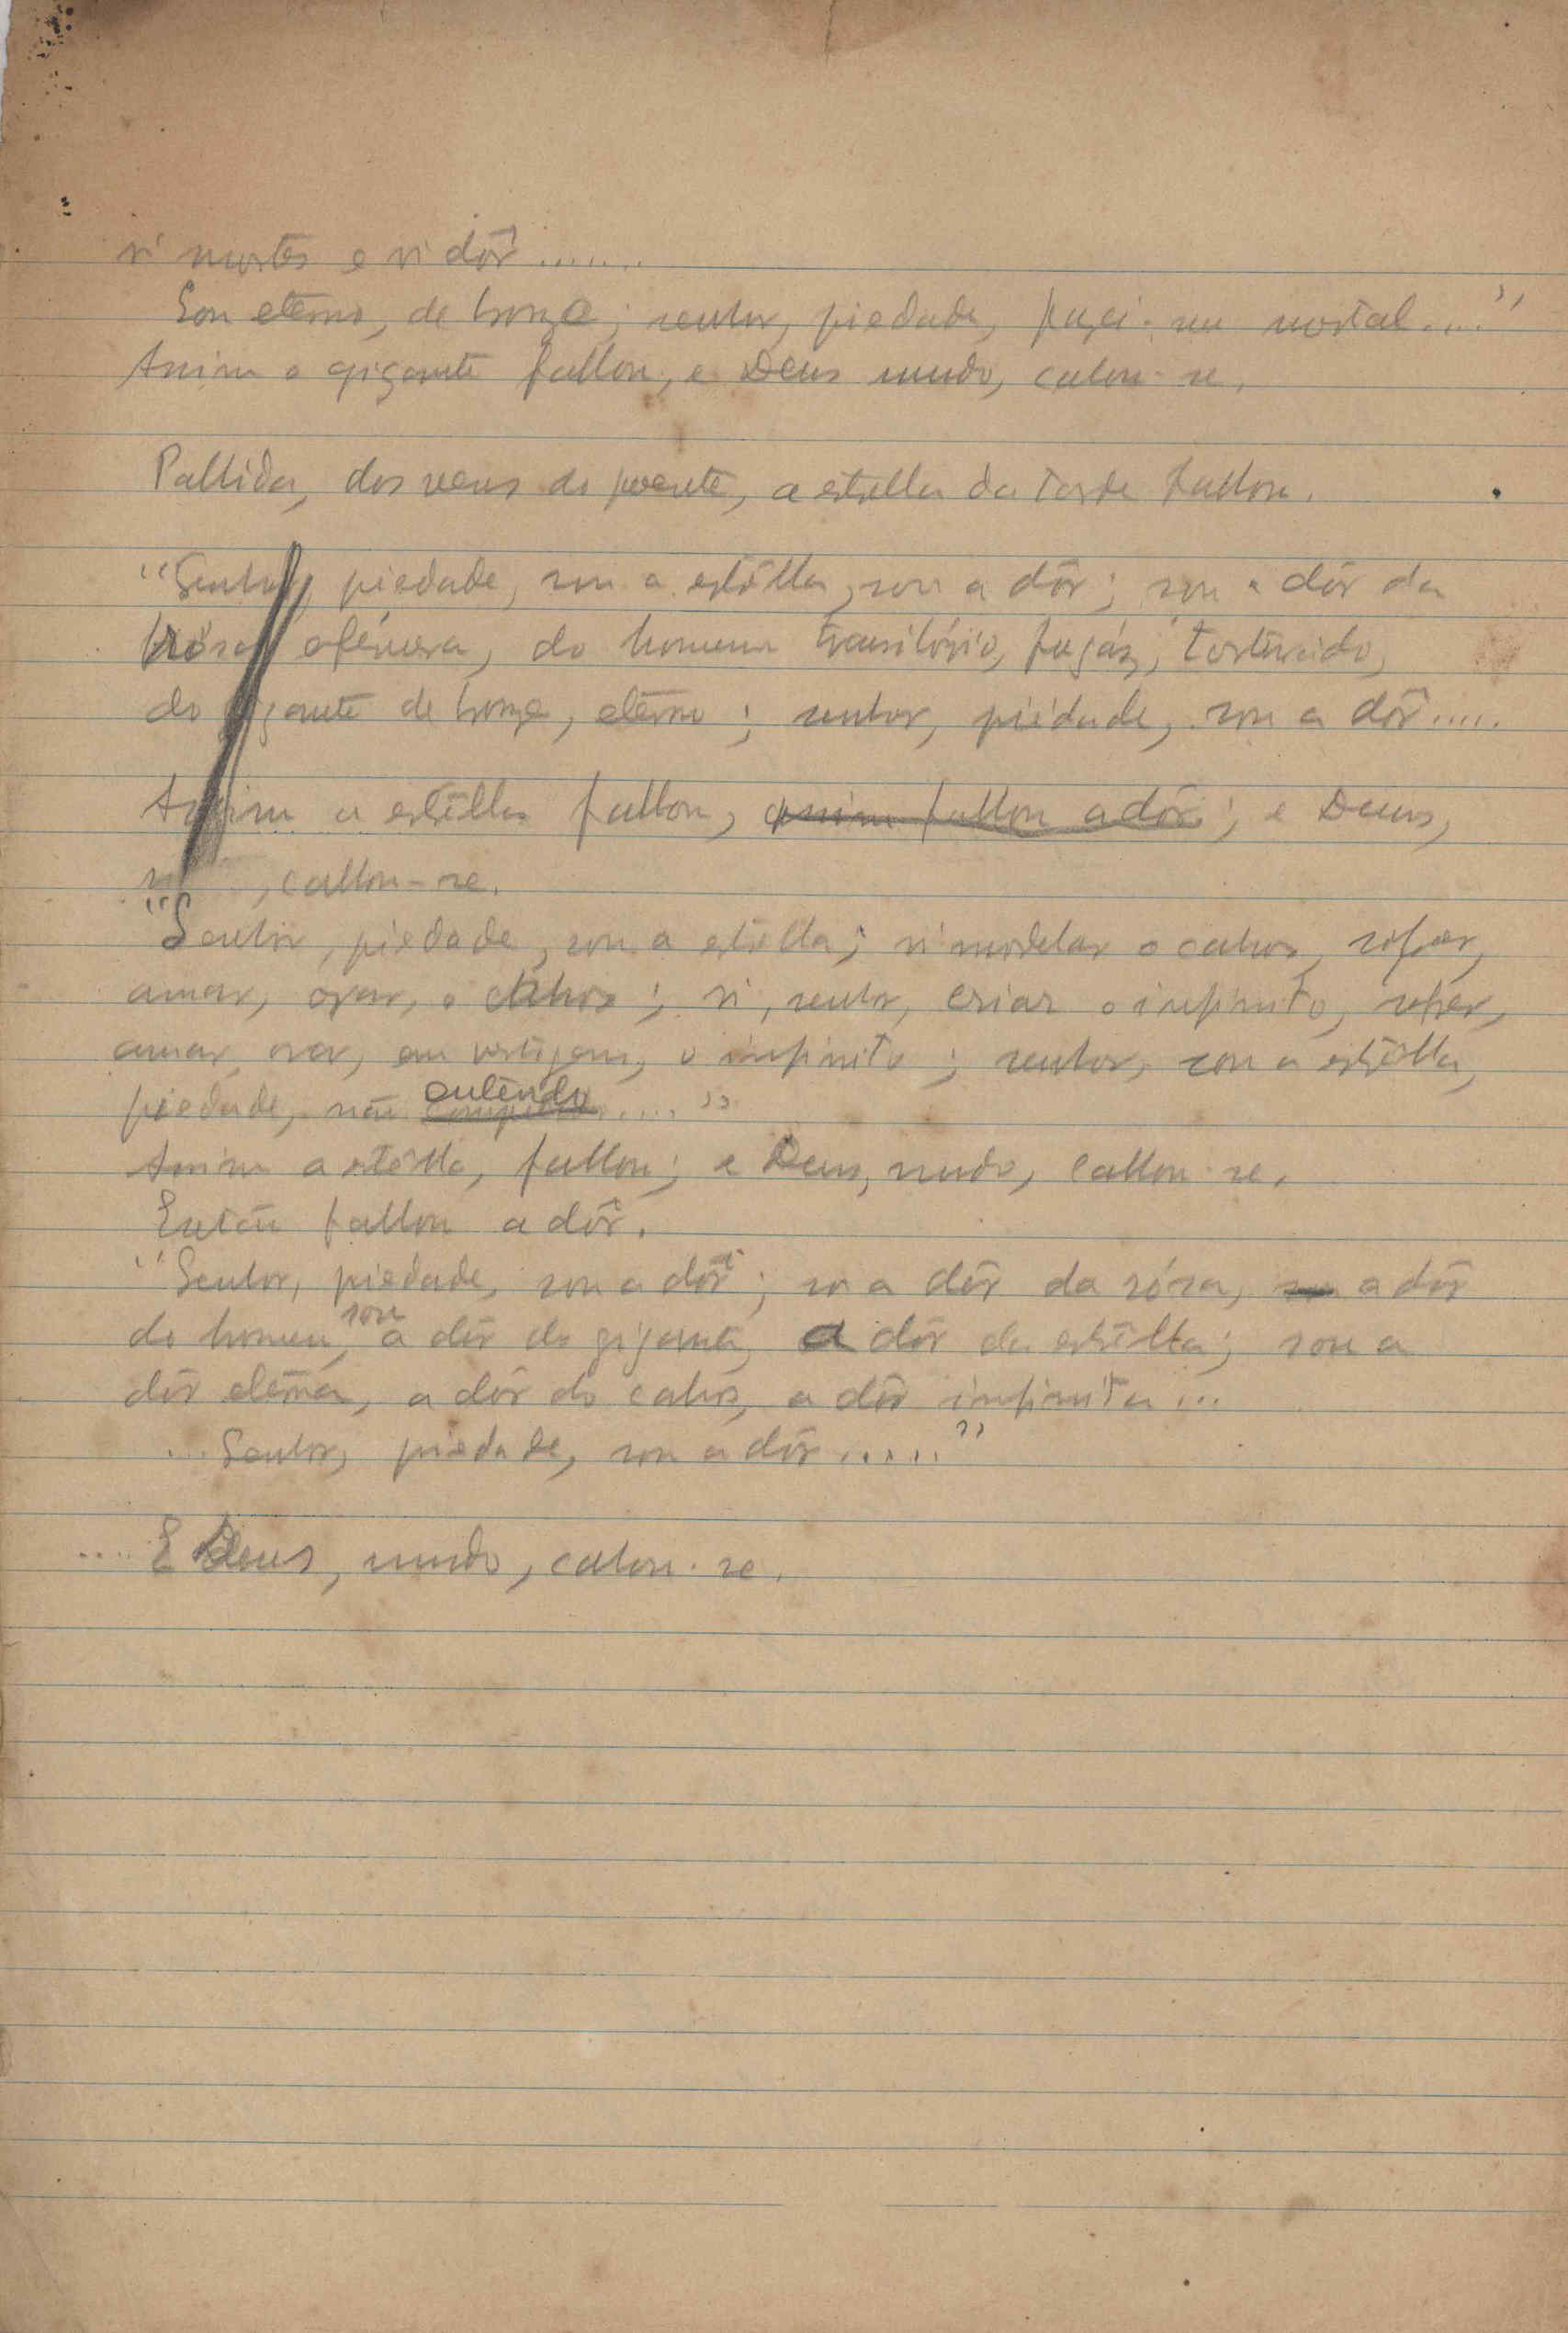 vi mortes e vi dôr.......
Sou eterno, de bronze; senhor, piedade, fazei-me mortal...."
Assim o gigante fallou, e Deus mudo, calou-se.
Pallida, dos veus do poente, a estrella da tarde fallou.
"Senhor, piedade, sou a estrêlla, sou a dôr; sou a dôr da
rósa efémera, do homem transitório, fugáz, torturado,
do gigante de bronze, eterno; senhor, piedade, sou a dôr.....
Assim a estrêlla fallou, assim fallou a dôr; e Deus,
, callou-se.
"Senhor, piedade, sou a estrella; vi modelar o cahos, sofrer,
amar, orar, o cahos; vi, senhor, criar o infinito, sofrer,
amar, orar, em vertigem, o infinito; senhor, sou a estrêlla,
piedade, não entendo ....."
Assim a estrêlla, fallou; e Deus, mudo, callou-se.
Então fallou a dôr.
"Senhor, piedade, sou a dôr; sou a dôr da rósa, a dôr
do homem, sou a dôr do gigante, a dôr da estrêlla; sou a
dôr eterna, a dôr do cahos, a dôr infinita...
...Senhor, piedade, sou a dôr....."
.... E Deus, mudo, calou-se.